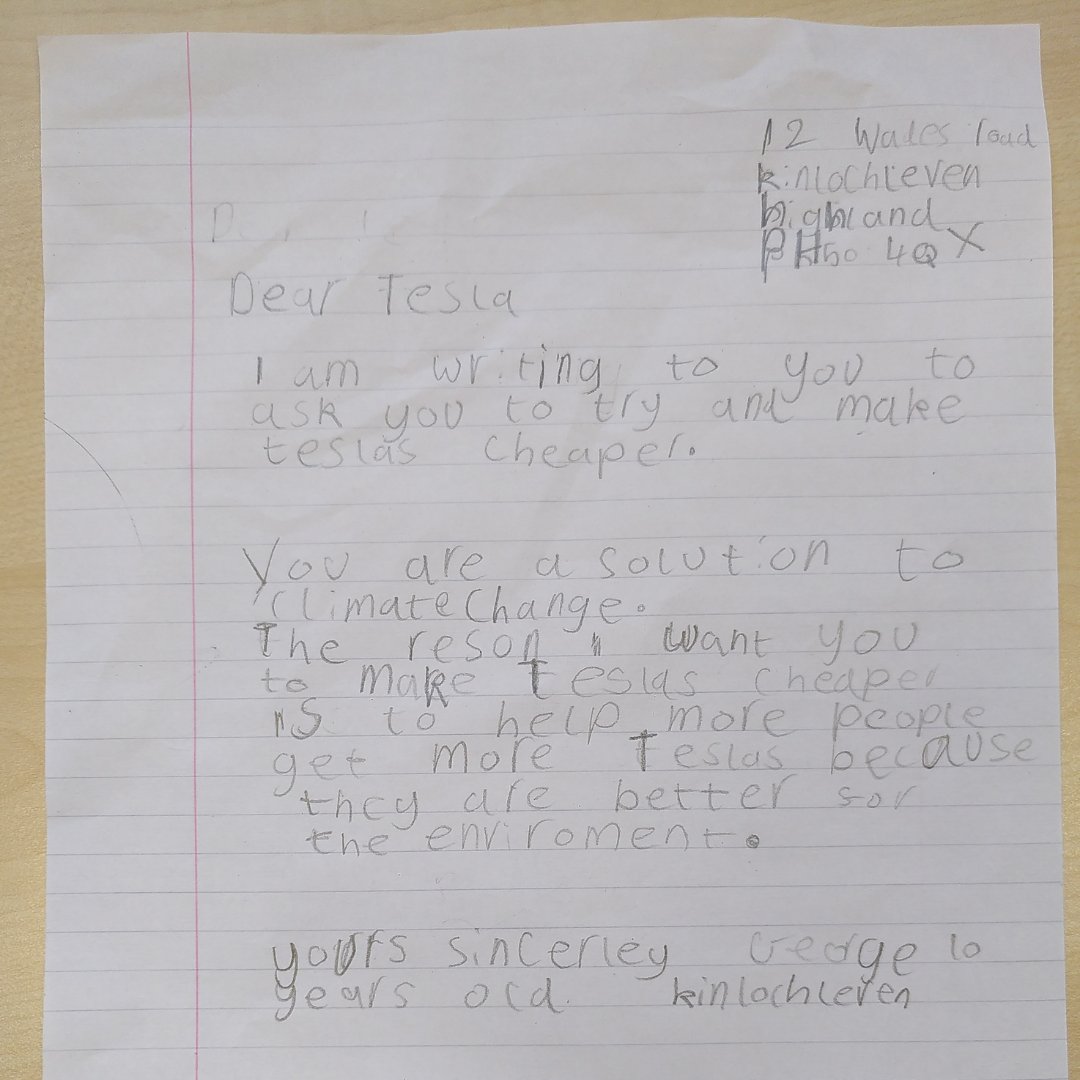 12 Wades road
kinlochleven
highland
PH50 4QX
Dear Tesla
I am writing to you to
ask you to try and make
teslas cheaper.
You are a solution to
climate change.
The reson I want you
to make Teslas cheaper
is to help more people
get more Teslas because
they are better for
the enviroment.
yours sincerley George 10
years old. kinlochleven